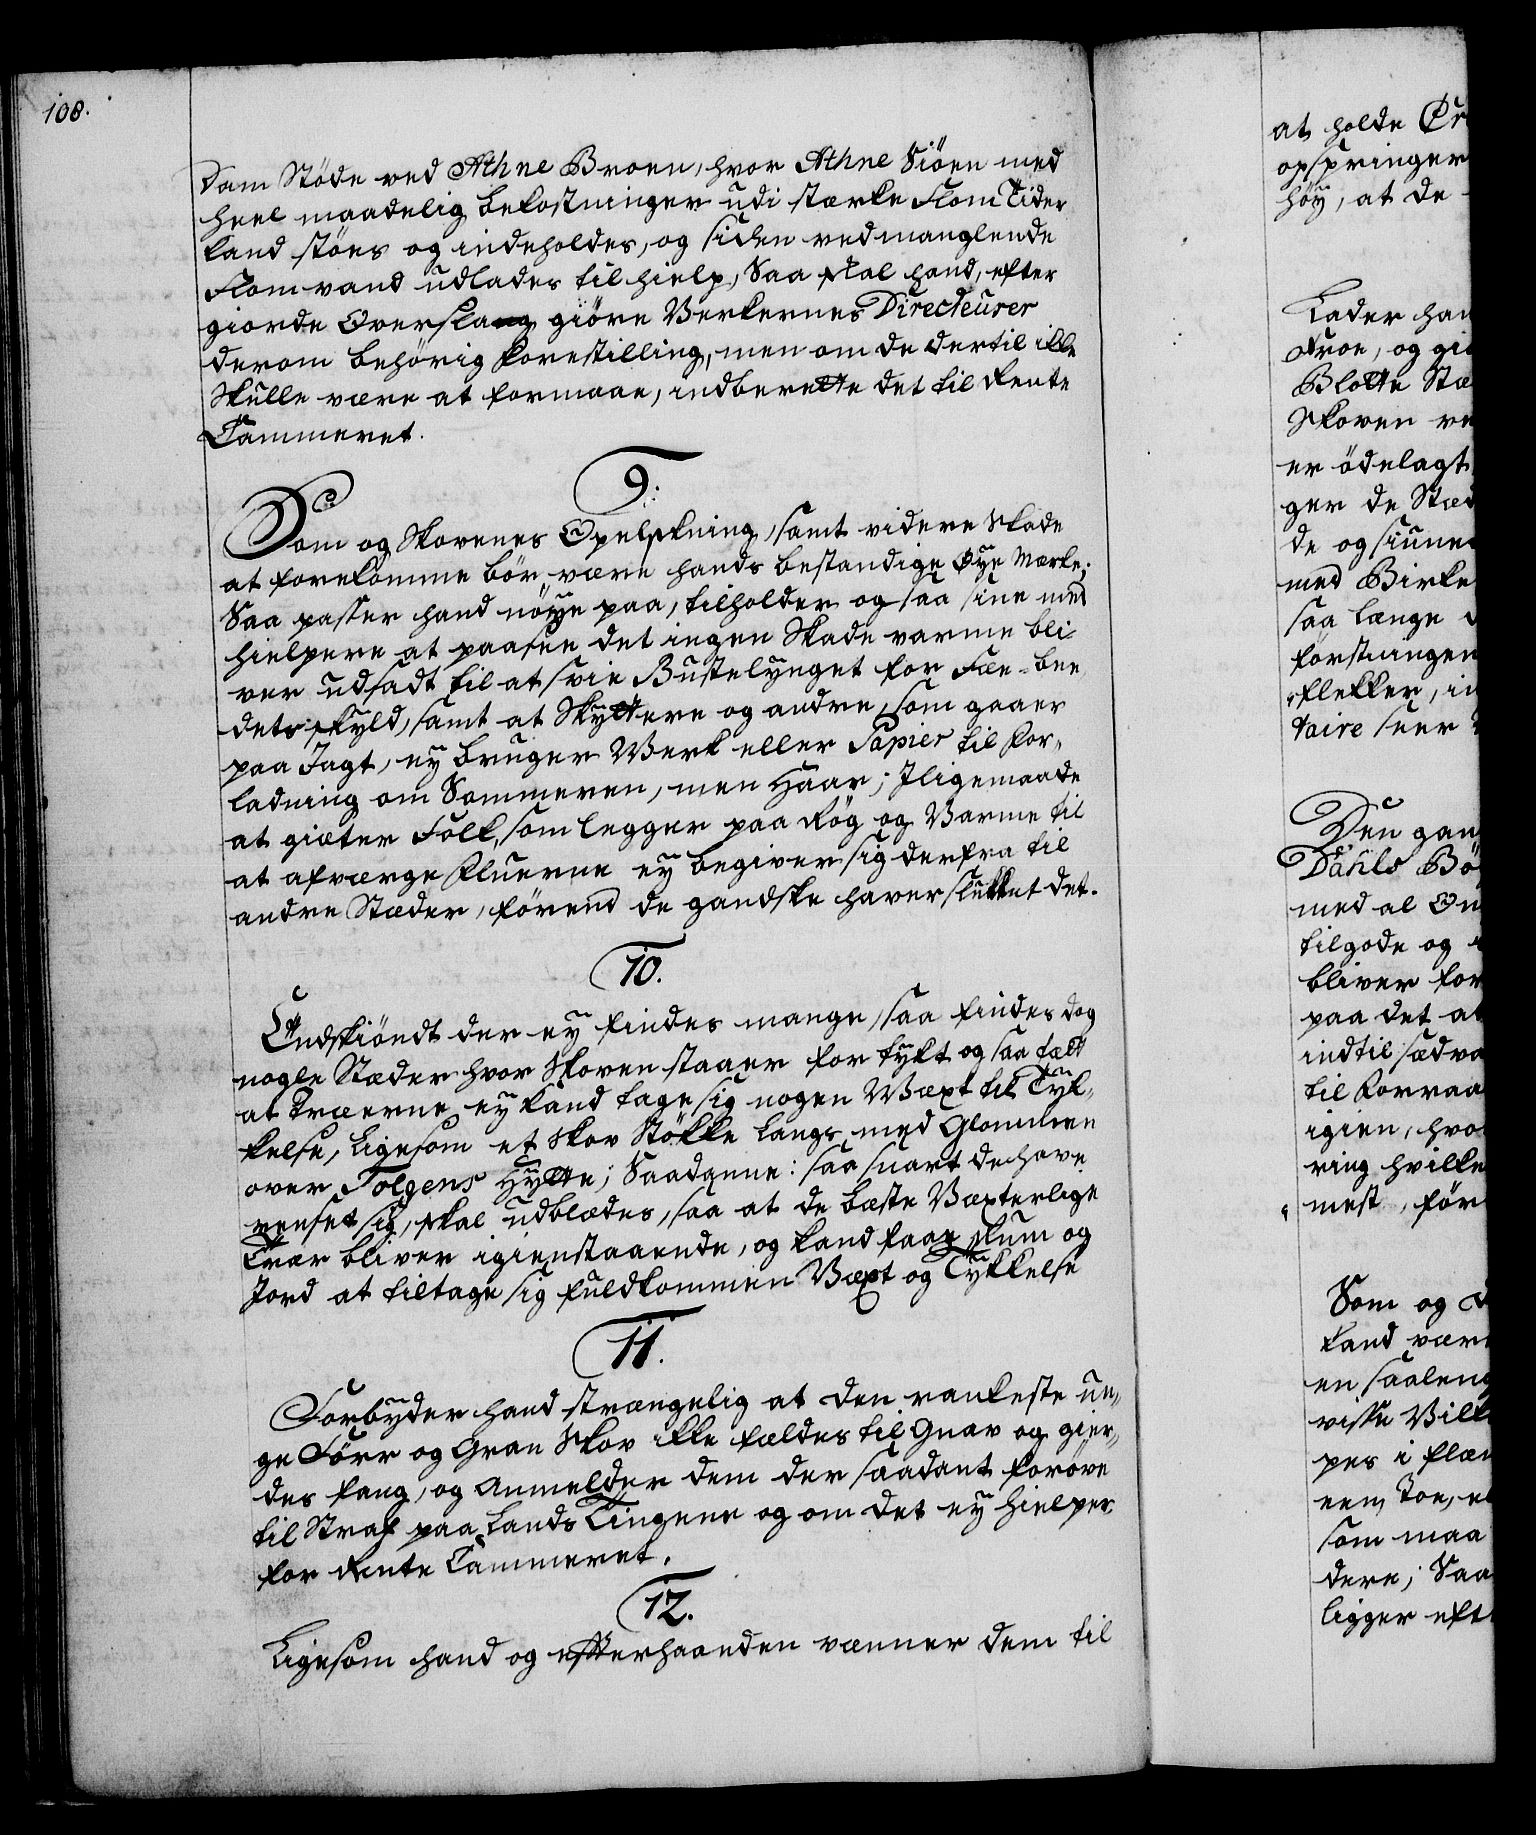 108.
Dam Støde ved Athne Broen, hvor Athne Siöen med
heel maadelig bekostninger udi stærke Flom Tider
kand stöes og indeholdes, og siden ved manglende
Flom vand udlades til hielp, Saa skal hand, efter
giorde Overslang giöre Verkernes Directeurer
derom behörig forestilling, men om de dertil ikke
Skulle være at formaae, indberette det til Rente
Cammeret.
9.
Som og Skovenes Opelskning, samt videre Skade
at forekomme bör være hands bestandige Øye Mærke;
Saa passer hand nöye paa, tilholder og saa sine med
hielpere at paasee det ingen Skade varme bli¬
ver udsadt til at svie Bustelynget for Fæe-bee
dets skyld, samt at Skyttere og andre, som gaaer
paa Jagt, ey bruger Werk eller Papier til For¬
ladning om Sommeren, men Haar; Iligemaade
at giæter Folk, som legger paa Røg og Varme til
at afværge Fluerne ey begiver sig derfra til
andre Stæder, förend de gandske haver slukket det.
10.
Endskiöndt der ey findes mange, saa findes dog
nogle Stæder hvor Skoven staaer for tykt og saa tæt
at Træerne ey kand tage sig nogen Wæxt til Tyk¬
kelse, Ligesom et Skov Stökke langs med Glommen
over Tolgens Hytte; Saadanne: saa snart de have
renset sig, skal udblædes, saa at de bæste Væxterlige
Træer bliver igienstaaende, og kand faae Rum og
Jord at tiltage sig fuldkommen Væxt og Tykkelse
11.
Forbyder hand strængelig at den rankeste un¬
ge Förr og Gran Skov ikke fældes til Gnav og gier¬
des fang, og Anmelder dem der saadant foröve
til Straf paa Lands Tingene og om det ey hielper
for Rente Cammeret.
12.
Ligesom hand og efterhaanden vænner dem til
at holde
opspringer
höy, at de
Lader han
Froe, og
Blotte
Skoven
er ödelagt
ger de
de og
med Birke
saa længe
forstningen
flekker,
taire seer
Den gan
Dahls
med al
tilgode og
bliver for
paa det at
indtil
til Forraa
igien, hvo
ring hvilke
mest, för
Som og
kand vær
en saaleng
visse
per i
een, Toe,
som maa
dere; Saa
ligger eft